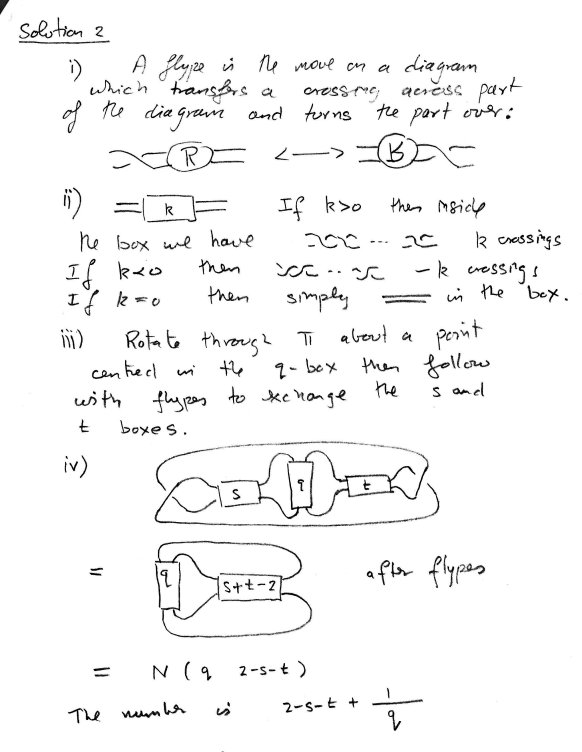 Solution 2
i) A flype is the move on a diagram
which transfers a crossing across part
of the diagram and turns the part over:
R <—> R
ii) k If k>0 then inside
the box we have ... k crossings
If k<0 then .. -k crossings
If k=0 then simply in the box.
iii) Rotate through π about a point
centred in the q-box then follow
with flypes to exchange the s and
t boxes.
iv)
s q t
= q s+t-2 after flypes
= N ( q 2-s-t )
The number is 2-s-t + 1/q